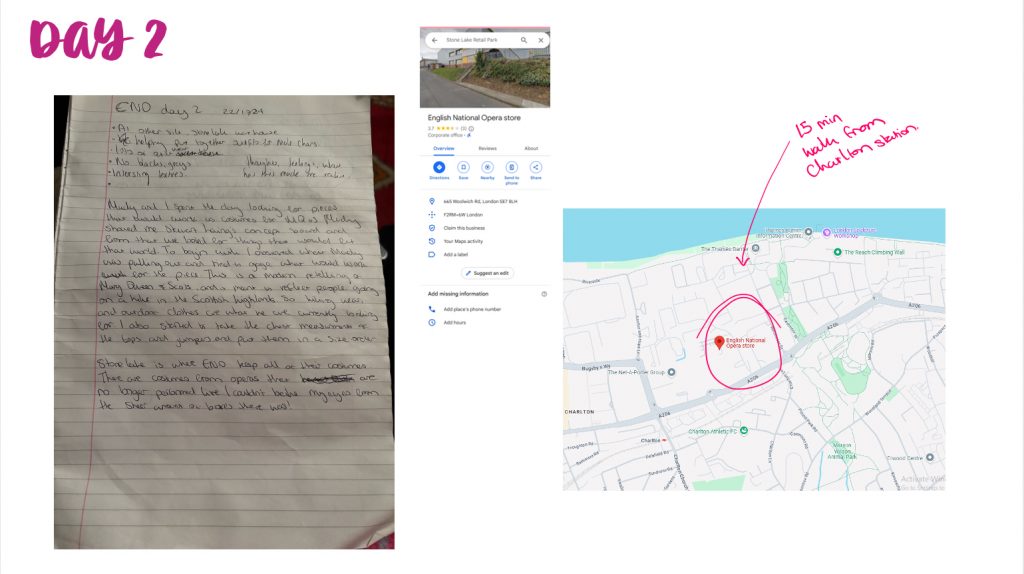 DAY 2
ENO day 2 22/1/24
• At other site, stonelake warehouse
helping put together outfits for male chars.
• No blacks, greys
thoughts, feelings, what
how this made me realise.
• Interesting textures
Mucky and I spent the day looking for pieces
that would work as costumes for MQoS. Mucky
showed me Stewart Laing's concept board and
from that we looked for things that would fit
that world. To begin with I observed what Mucky
was pulling out and tried to gauge what would work
for the piece. This is a modern retelling of
Mary Queen of Scots and is meant to reflect people going
on a hike in the Scottish highlands. So hiking wear
and outdoor clothes are what we are currently looking
for. I also started to take the chest measurements of
the tops and jumpers and put them in a size order.
Stonelake is where ENO keep all of their costumes.
There are costumes from operas that are
no longer performed here. I couldn't believe my eyes from
the sheer amount of boxes there was!
Stone Lake Retail Park
English National Opera store
3.7 (3)
Corporate office
Overview Reviews About
Directions
Save
Nearby
Send to phone
Share
665 Woolwich Rd, London SE7 8LH
F2RM+6W London
Claim this business
Your Maps activity
Add a label
Suggest an edit
Add missing information
Add place's phone number
Add hours
15 min
walk from
Charlton station.
Thames Barrier
Information Centre
London Sculpture
Workshop
The Thames Barrier
The Reach Climbing Wall
Riverside
English National
Opera store
Bugsby's Way
The Net-A-Porter Group
A206
CHARLTON
A206
Charlton Athletic FC
Charlton
Troughton Rd
Delafield Rd
Charlton Church Ln
Charlton Ln
Maryon
Wilson
Animal Park
Thorntree Rd
Woodland Terrace
Triwood Centre
Activate Win
Go to Settings to